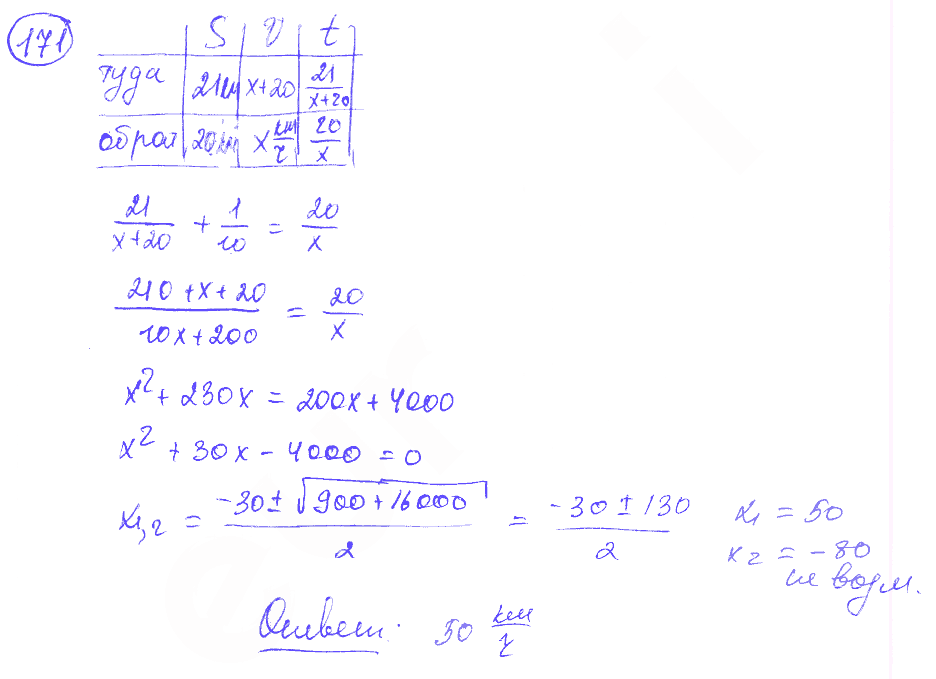 171
S V t
туда 21км x+20 21/(x+20)
обрат 20км x км/ч 20/x
21/(x+20) + 1/10 = 20/x
(210+x+20)/(10x+200) = 20/x
x² + 230x = 200x + 4000
x² + 30x - 4000 = 0
x₁,₂ = (-30 ± √(900+16000))/2 = (-30 ± 130)/2 x₁ = 50
x₂ = -80
не возм.
Ответ: 50 км/ч